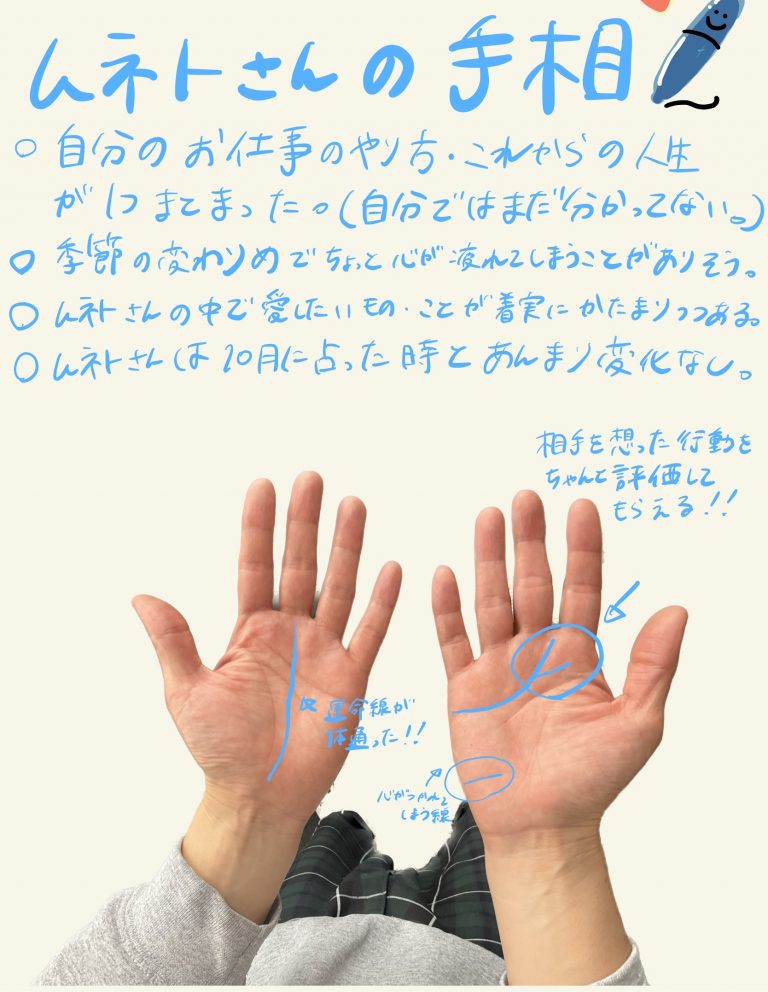 ムネトさんの手相
○ 自分のお仕事のやり方・これからの人生
が1つまとまった。(自分ではまだ分かってない。)
○ 季節の変わりめでちょっと心が疲れてしまうことがありそう。
○ ムネトさんの中で愛したいもの・ことが着実にかたまりつつある。
○ ムネトさんは10月に占った時とあんまり変化なし。
相手を想った行動を
ちゃんと評価して
もらえる!!
運命線が
1本通った!!
心がつかれて
しまう線